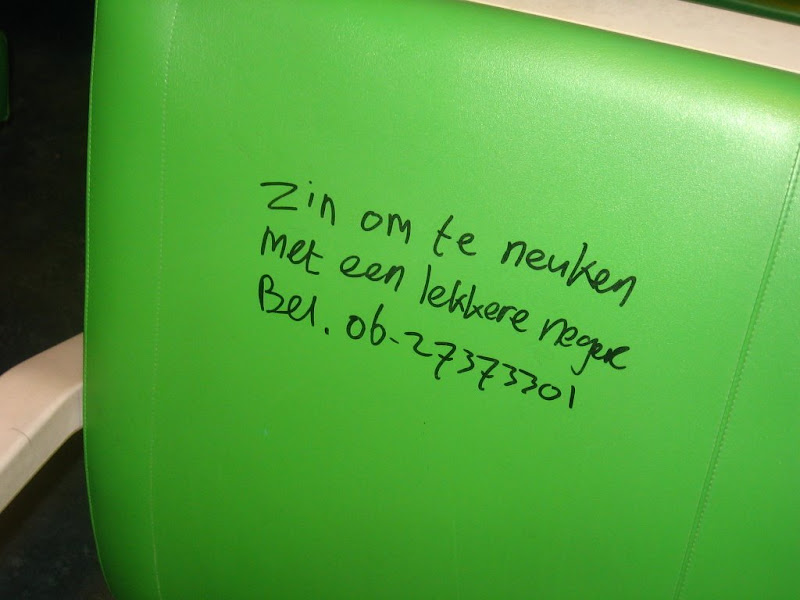 Zin om te neuken
met een lekkere neger
Bel. 06-27373301